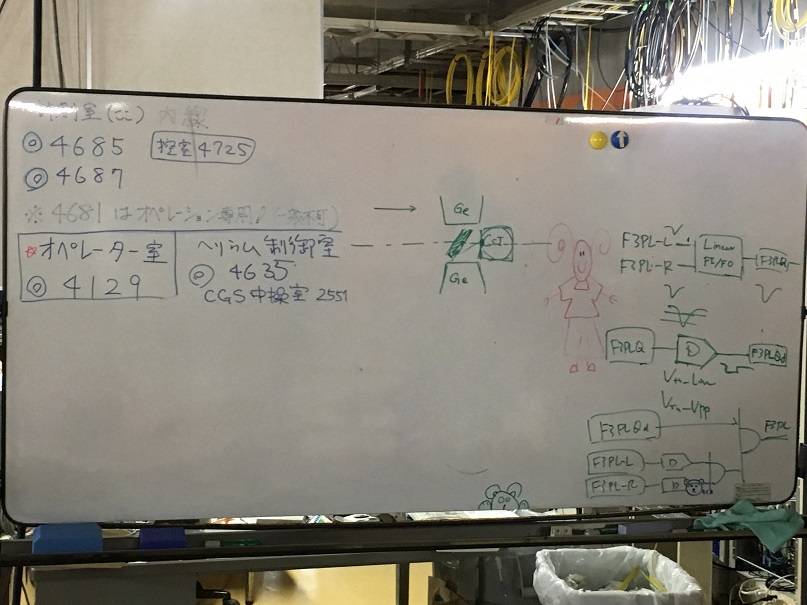 計測室(ここ) 内線
◎ 4685 控室4725
◎ 4687
※ 4681 はオペレーション専用♪(一般不可)
オペレーター室
◎ 4129
ヘリウム制御室
◎ 4635
CGS中操室 2551
Ge
CsI
Ge
F3PL-L
F3PL-R
Linear
FI/FO
F3PLQ
F3PLQ
D
F3PLQd
Vth-Low
Vth-Vpp
F3PLQd
F3PL
F3PL-L
D
F3PL-R
D